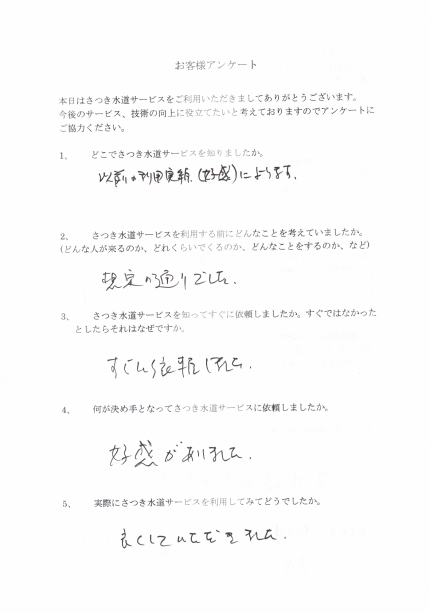 お客様アンケート
本日はさつき水道サービスをご利用いただきましてありがとうございます。
今後のサービス、技術の向上に役立てたいと考えておりますのでアンケートに
ご協力ください。
1、 どこでさつき水道サービスを知りましたか。
以前の利用実績(好感)によります。
2、 さつき水道サービスを利用する前にどんなことを考えていましたか。
(どんな人が来るのか、どれくらいでくるのか、どんなことをするのか、など)
想定の通りでした.
3、 さつき水道サービスを知ってすぐに依頼しましたか。すぐではなかった
としたらそれはなぜですか。
すぐに依頼しました.
4、 何が決め手となってさつき水道サービスに依頼しましたか。
好感がありました.
5、 実際にさつき水道サービスを利用してみてどうでしたか。
良くしていただきました.